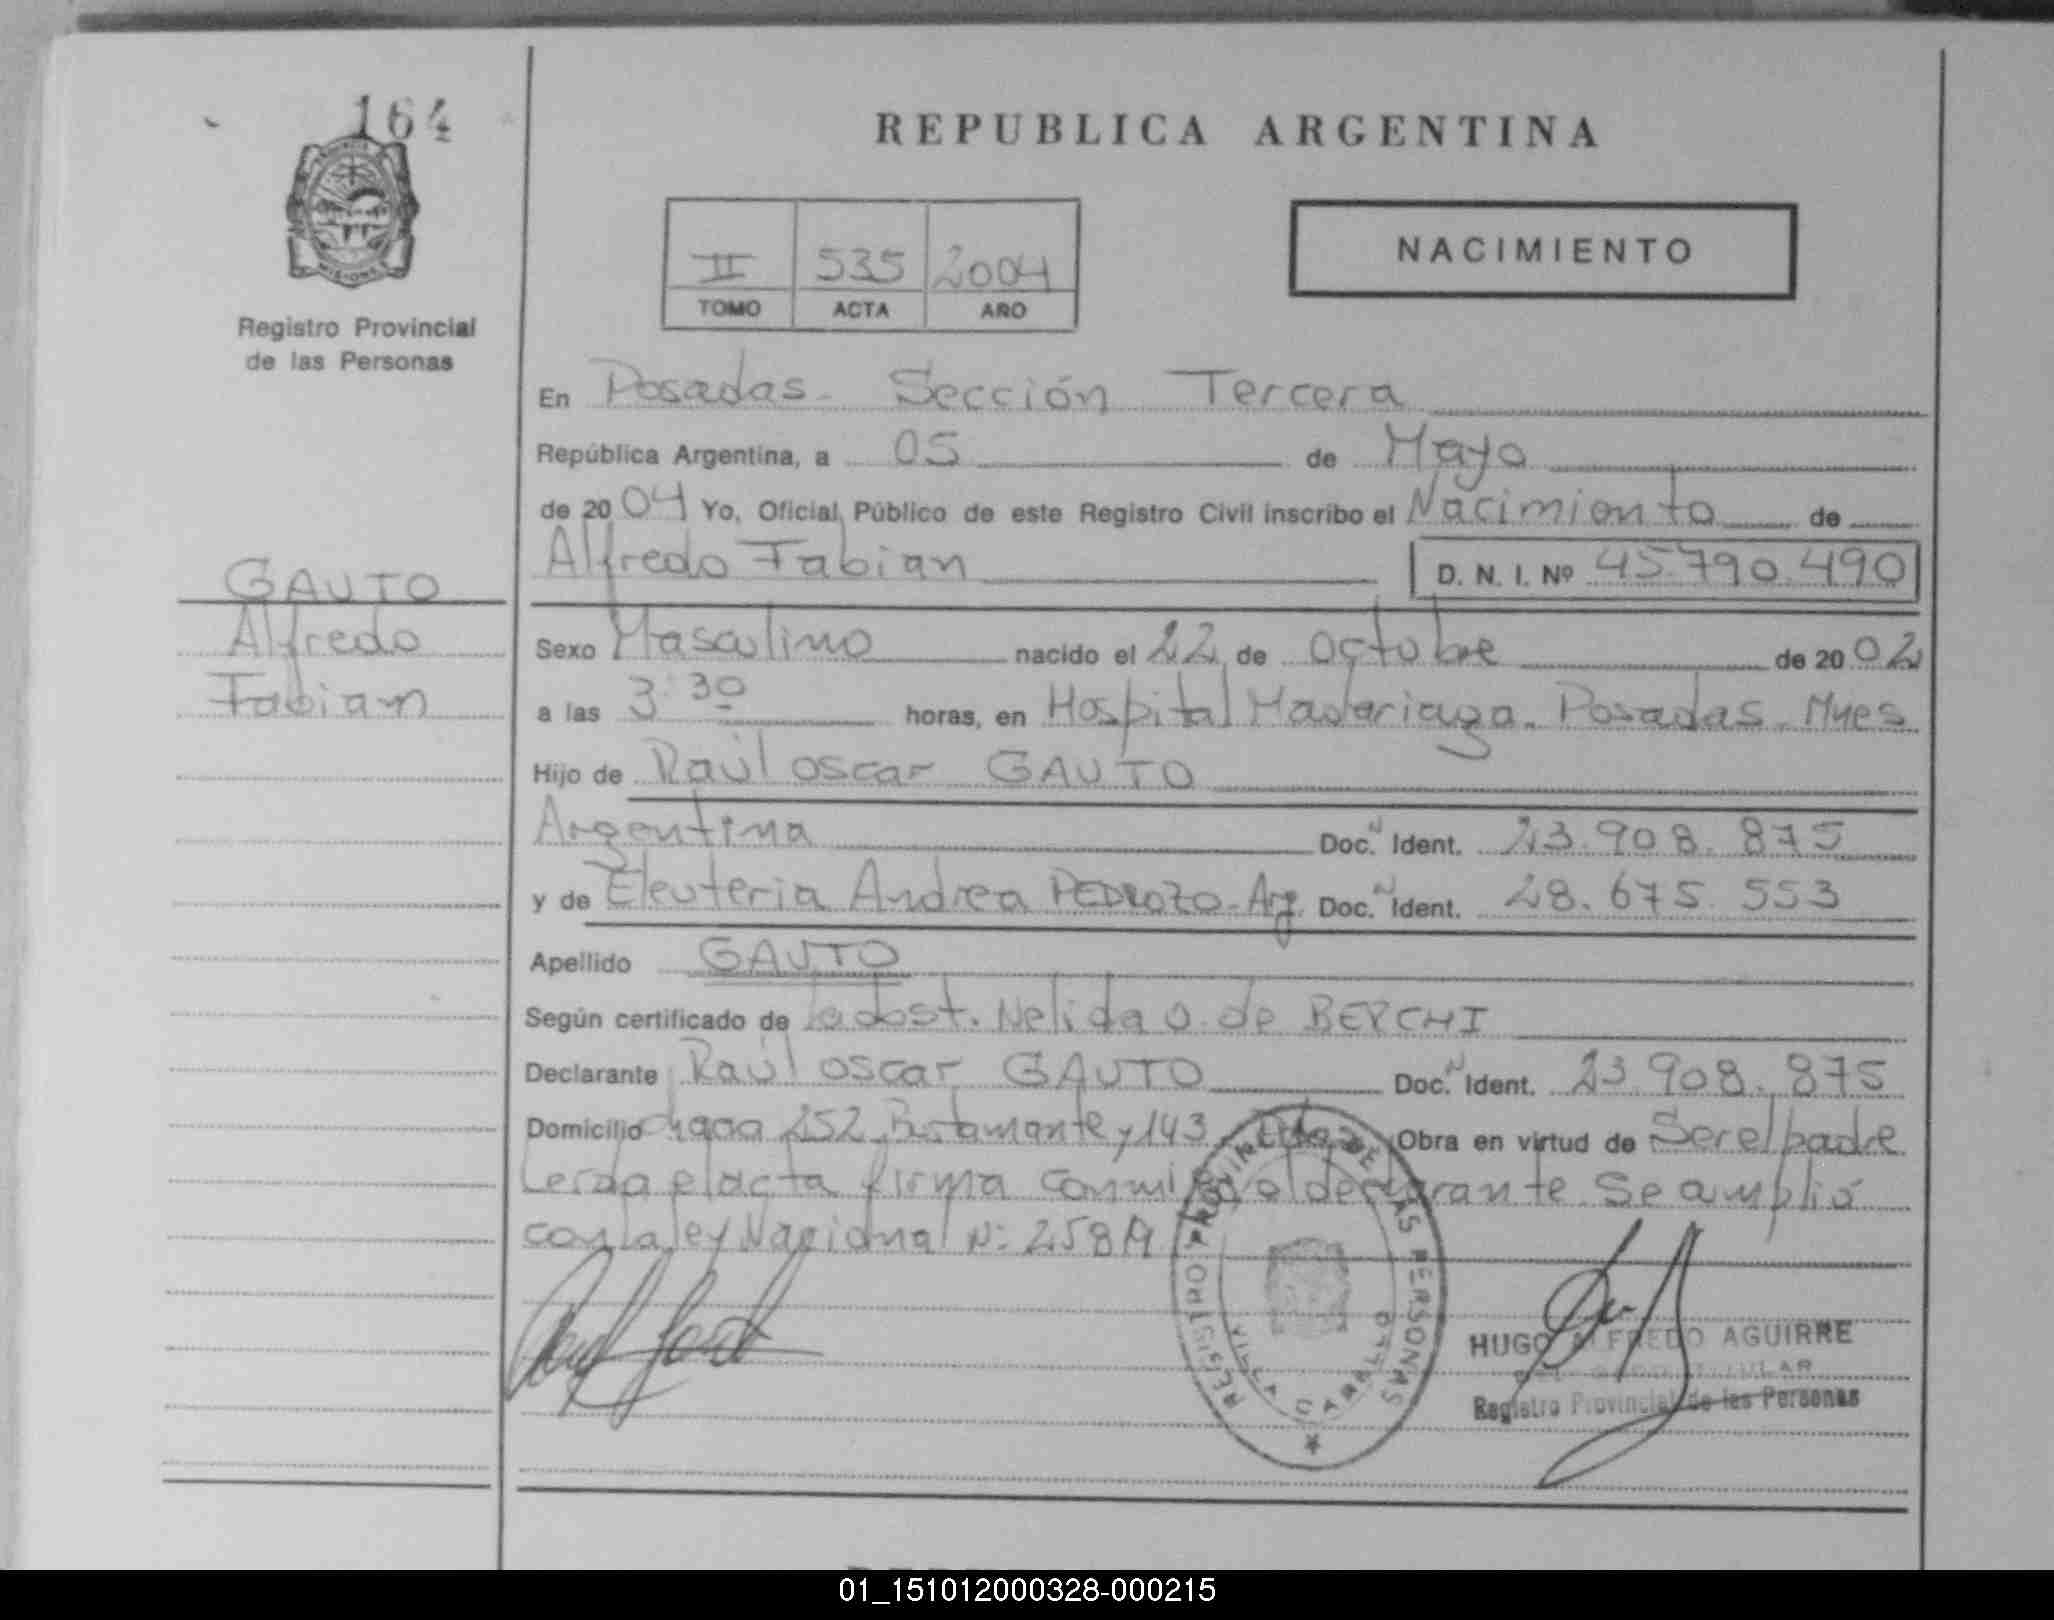 164
PROVINCIA
MISIONES
Registro Provincial
de las Personas
REPUBLICA ARGENTINA
II 535 2004
TOMO ACTA AÑO
NACIMIENTO
En Posadas - Sección Tercera
República Argentina, a 05 de Mayo
de 2004 Yo, Oficial Público de este Registro Civil inscribo el Nacimiento de
Alfredo Fabian D. N. I. Nº 45.790.490
GAUTO
Alfredo
Fabian
Sexo Masculino nacido el 22 de octubre de 2002
a las 3:30 horas, en Hospital Madariaga - Posadas - Mnes
Hijo de Raúl oscar GAUTO
Argentina Doc. Ident. 23.908.875
y de Eleuteria Andrea PEDROZO - Arg. Doc. Ident. 28.675.553
Apellido GAUTO
Según certificado de la obst. Nelida O. de BERCHI
Declarante Raúl oscar GAUTO Doc. Ident. 23.908.875
Domicilio chacra 252 Bustamante y 143 Obra en virtud de Ser el padre
Leida el acta firma conmigo el declarante. Se amplió
con la ley Nacional Nº 25819
REGISTRO PROVINCIAL DE LAS PERSONAS
HUGO ALFREDO AGUIRRE
TITULAR
Registro Provincial de las Personas
01_151012000328-000215